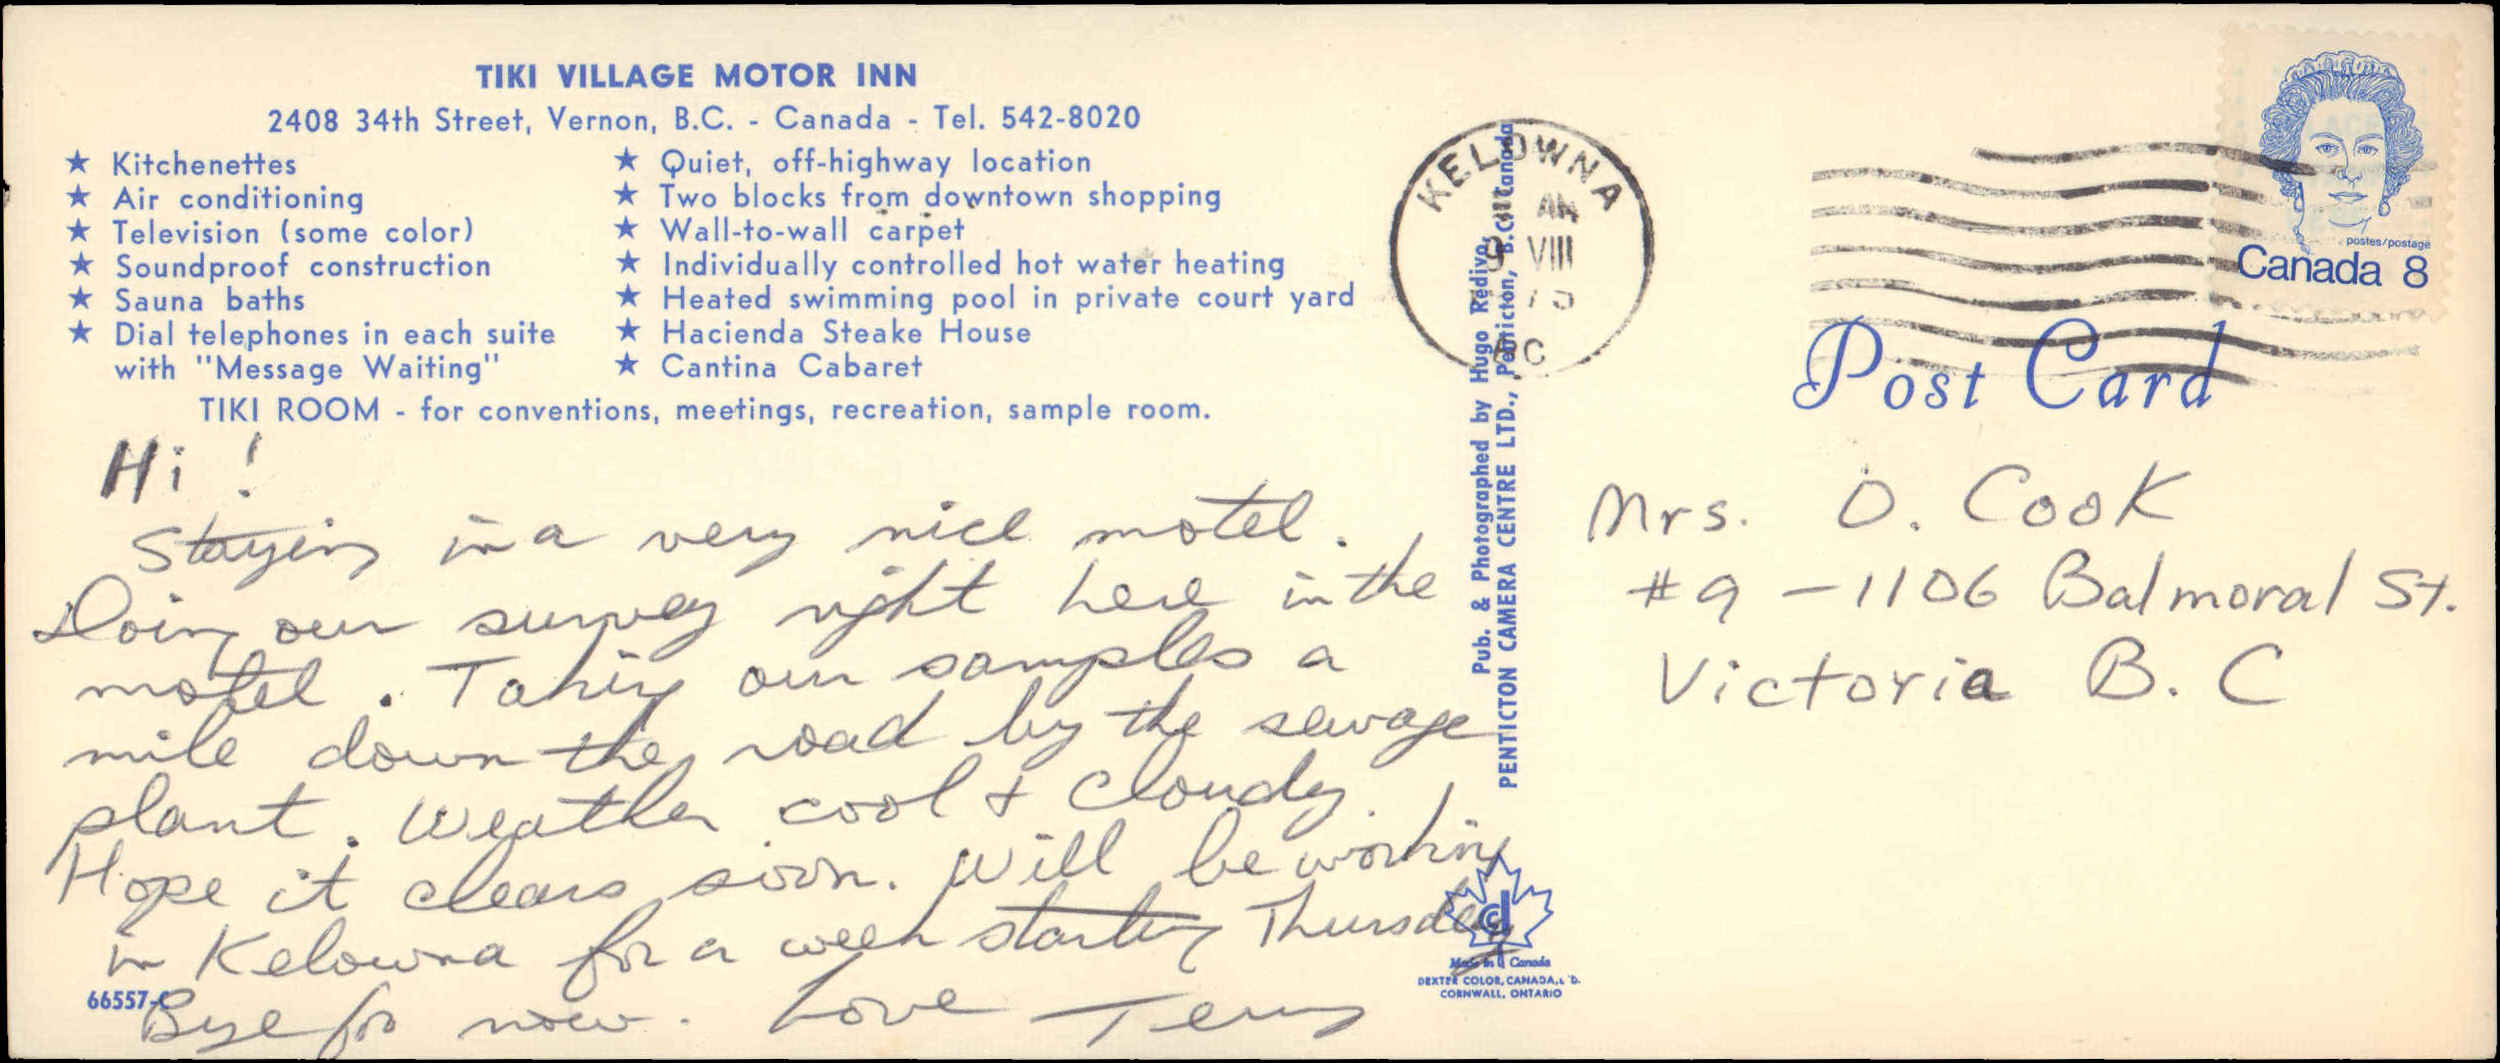 TIKI VILLAGE MOTOR INN
2408 34th Street, Vernon, B.C. - Canada - Tel. 542-8020
★ Kitchenettes
★ Air conditioning
★ Television (some color)
★ Soundproof construction
★ Sauna baths
★ Dial telephones in each suite
with "Message Waiting"
★ Quiet, off-highway location
★ Two blocks from downtown shopping
★ Wall-to-wall carpet
★ Individually controlled hot water heating
★ Heated swimming pool in private court yard
★ Hacienda Steake House
★ Cantina Cabaret
TIKI ROOM - for conventions, meetings, recreation, sample room.
Hi!
Staying in a very nice motel.
Doing our survey right here in the
motel. Taking our samples a
mile down the road by the sewage
plant. Weather cool & cloudy.
Hope it clears soon. Will be working
in Kelowna for a week starting Thursday
Bye for now. Love Terry
66557-
Pub. & Photographed by Hugo Redivo,
PENTICTON CAMERA CENTRE LTD., Penticton, B.C., Canada
Made in Canada
DEXTER COLOR, CANADA, L'D.
CORNWALL, ONTARIO
KELOWNA
AM
9 VIII
75
BC
postes/postage
Canada 8
Post Card
Mrs. O. Cook
#9 - 1106 Balmoral St.
Victoria B. C